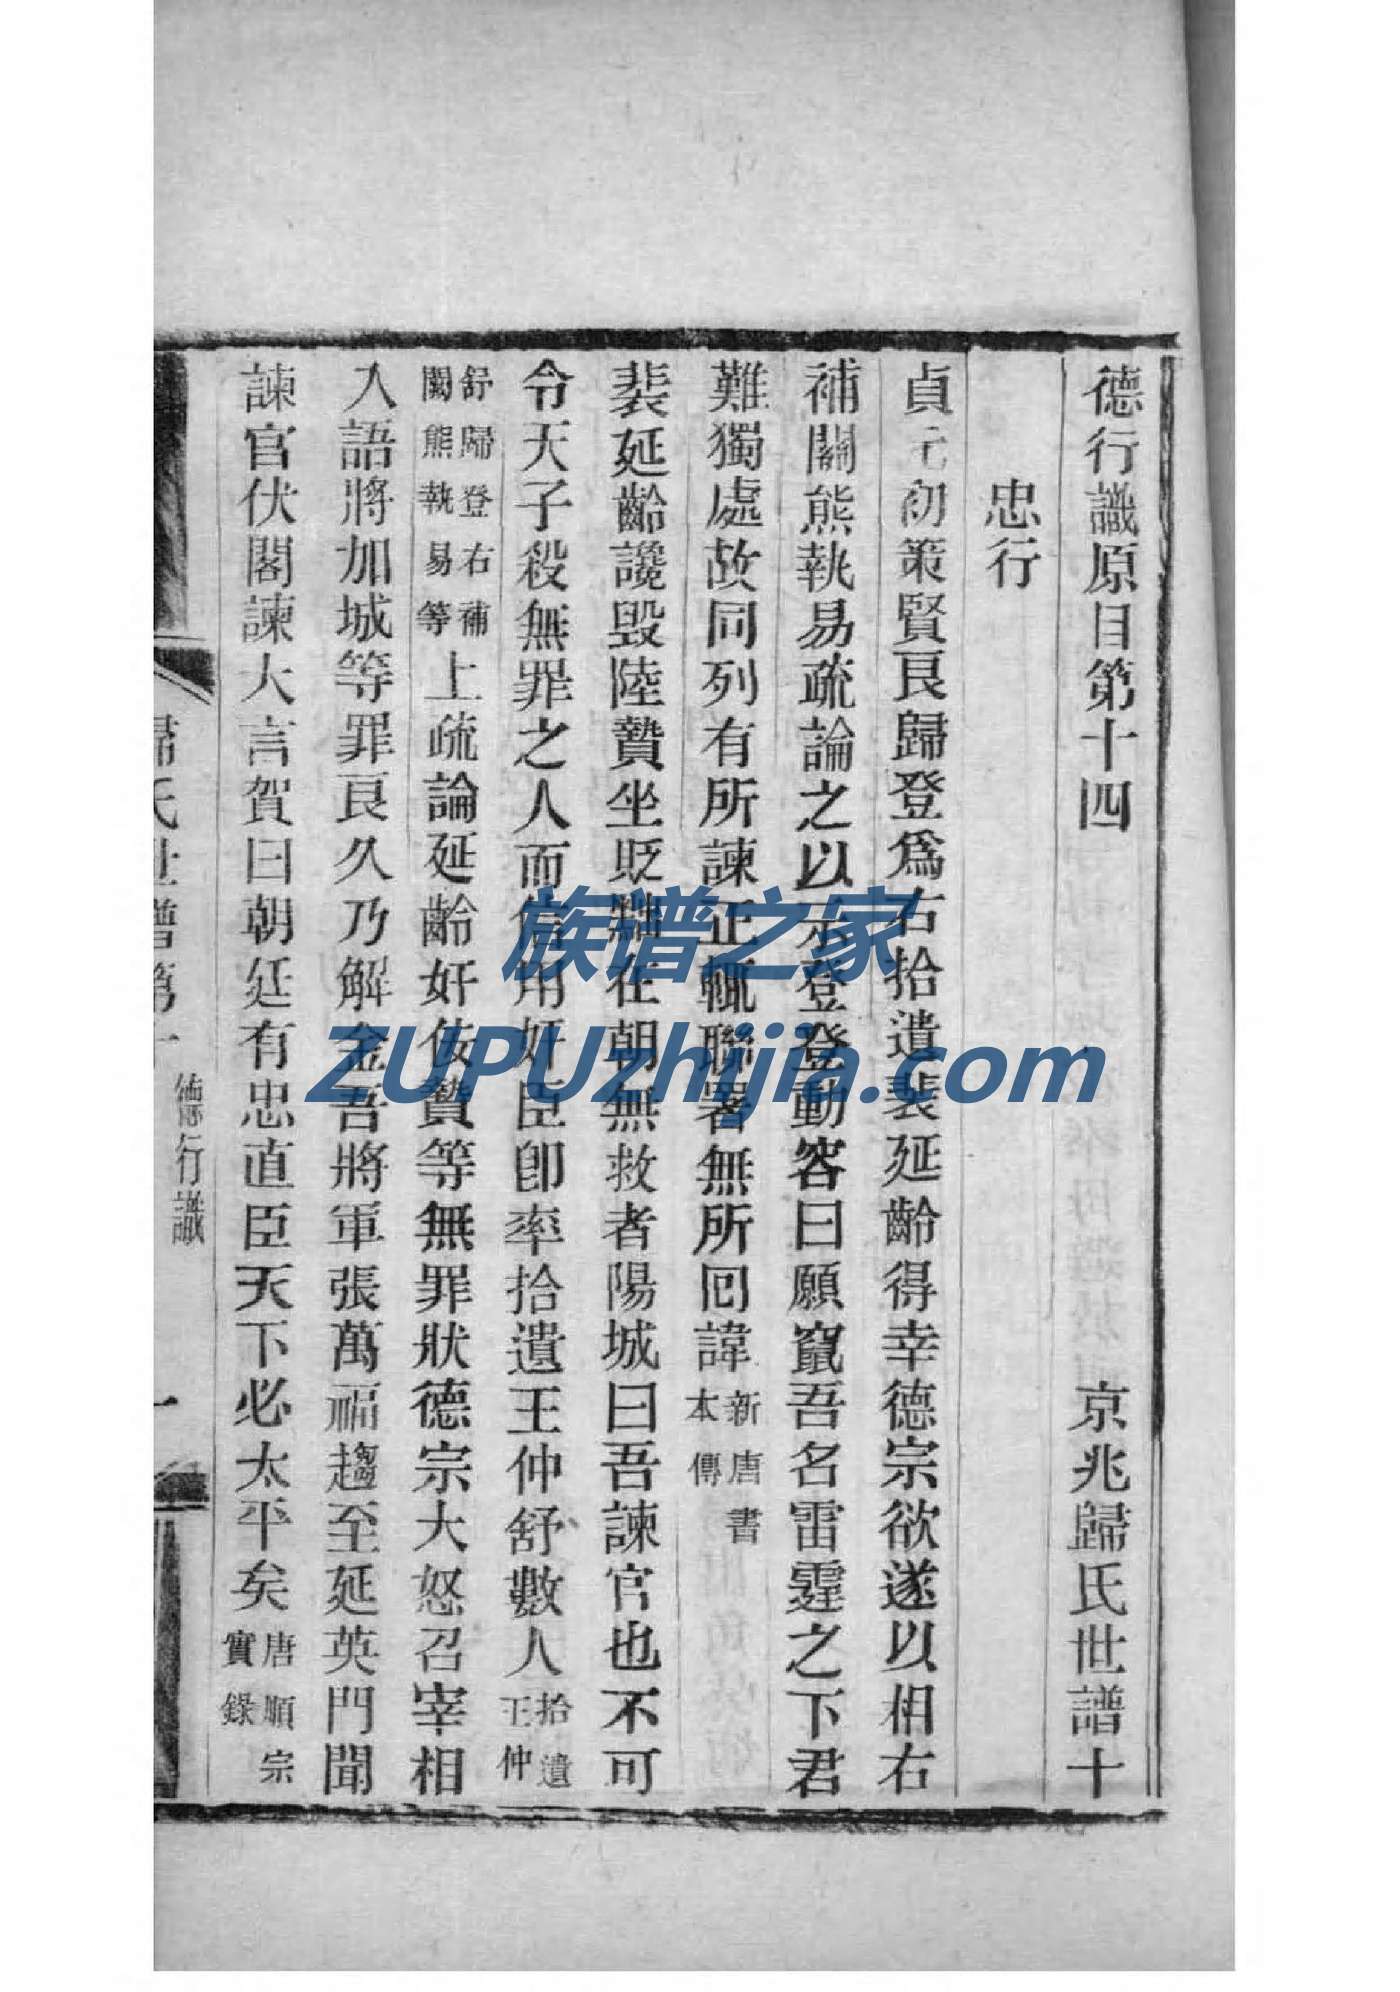 德行識原目第十四 京兆歸氏世譜十
忠行
貞元初策賢良歸登爲右拾遺裴延齡得幸德宗欲遂以相右
補闕熊執易疏論之以示登登動容曰願竄吾名雷霆之下君
難獨處故同列有所諫正輒聯署無所回諱新唐書本傳
裴延齡讒毀陸贄坐貶黜在朝無救者陽城曰吾諫官也不可
令天子殺無罪之人而信用奸臣卽率拾遺王仲舒數人拾遺王仲
舒歸登右補闕熊執易等上疏論延齡奸佞贄等無罪狀德宗大怒召宰相
入語將加城等罪良久乃解金吾將軍張萬福趨至延英門聞
諫官伏閤諫大言賀曰朝廷有忠直臣天下必太平矣唐順宗實錄
歸氏世譜第十 德行識 一
族谱之家
ZUPUzhijia.com